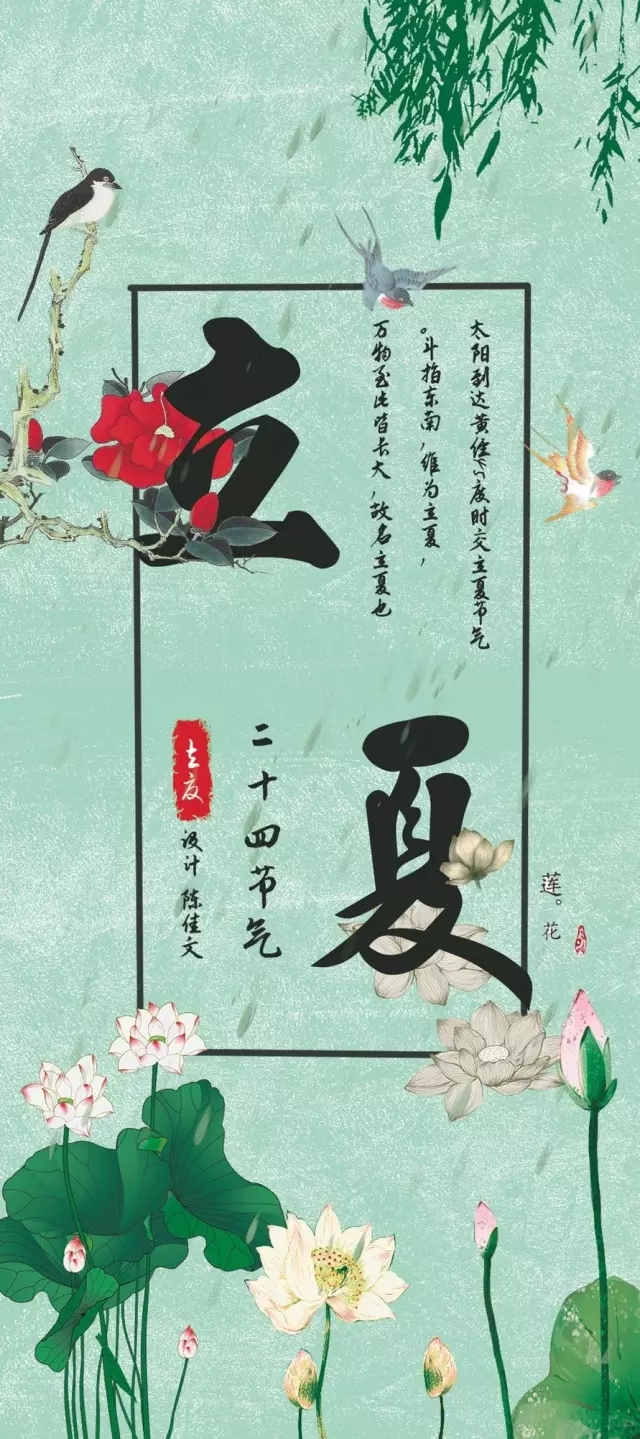 立
夏
太阳到达黄经45度时交立夏节气
。斗指东南，维为立夏，
万物至此皆长大，故名立夏也
二十四节气
立夏
设计 陈佳文
莲。花